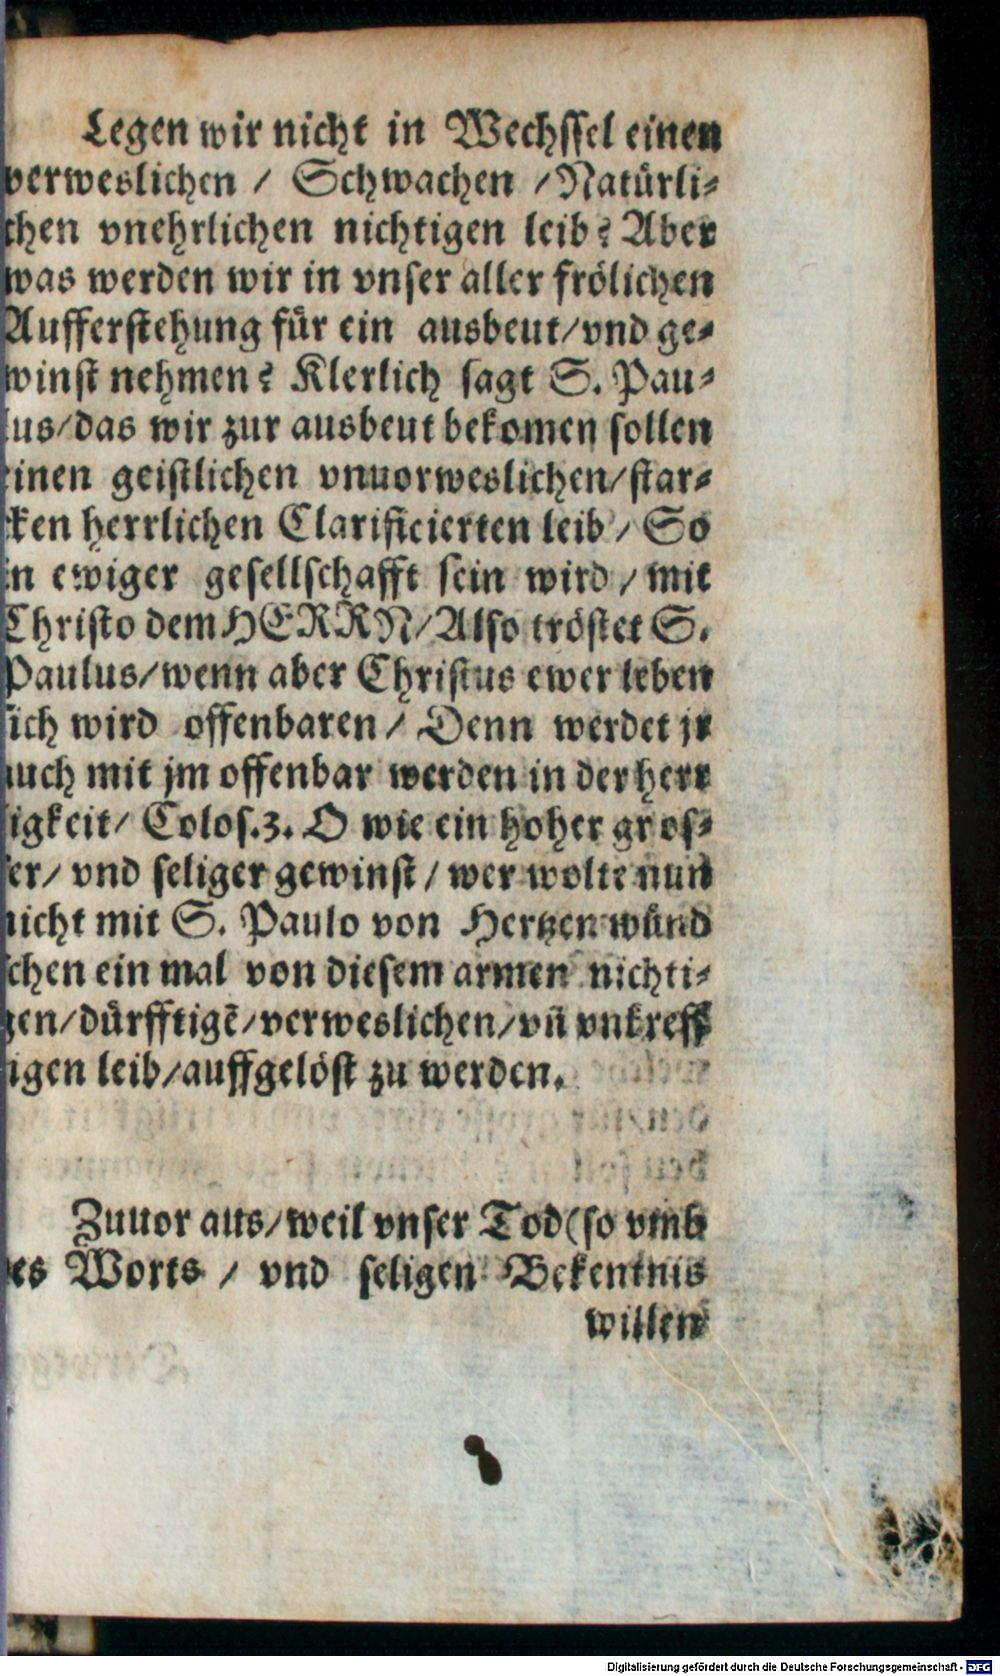 Legen wir nicht in Wechssel einen
verweslichen / Schwachen /Natürli⸗
chen vnehrlichen nichtigen leib? Aber
was werden wir in vnser aller frölichen
Aufferstehung für ein ausbeut/vnd ge⸗
winst nehmen? Klerlich sagt S. Pau⸗
lus/das wir zur ausbeut bekomen sollen
einen geistlichen vnuorweslichen/star⸗
cken herrlichen Clarificierten leib / So
in ewiger gesellschafft sein wird / mit
Christo dem HERRN/Also tröstet S.
Paulus/wenn aber Christus ewer leben
sich wird offenbaren / Denn werdet jr
auch mit jm offenbar werden in der herr
ligkeit/ Colos.3. O wie ein hoher gros⸗
ser/ vnd seliger gewinst / wer wolte nun
nicht mit S. Paulo von Hertzen wünd
schen ein mal von diesem armen nichti⸗
gen/dürfftigē/verweslichen/vñ vnkreff
tigen leib/auffgelöst zu werden.
Zuuor aus/weil vnser Tod(so vmb
des Worts / vnd seligen Bekentnis
willen
Digitalisierung gefördert durch die Deutsche Forschungsgemeinschaft - DFG